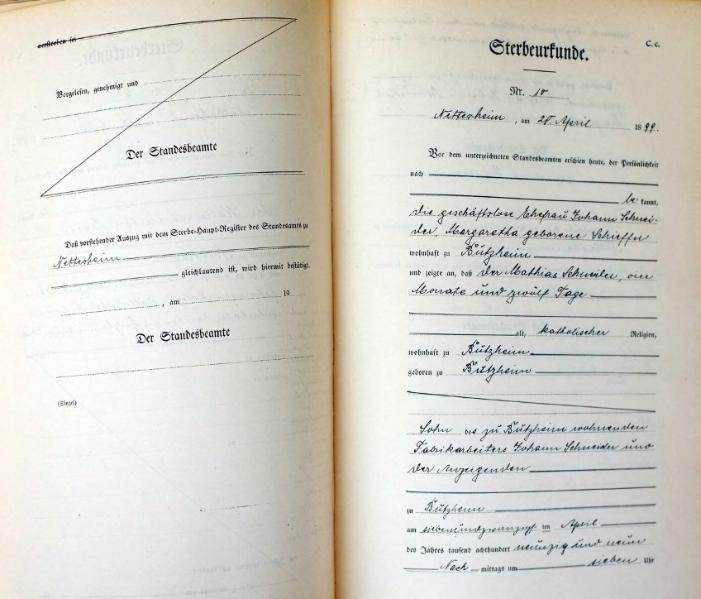 verstorben sei
Vorgelesen, genehmigt und
Der Standesbeamte
Daß vorstehender Auszug mit dem Sterbe-Haupt-Register des Standesamts zu
Nettersheim
gleichlautend ist, wird hiermit bestätigt.
, am 19
Der Standesbeamte
(Siegel)
C. c.
Sterbeurkunde.
Nr. 10
, am April 1899.
Vor dem unterzeichneten Standesbeamten erschien heute, der Persönlichkeit
nach
be kannt,
die geschäftslose Ehefrau Johann Schnei-
der, Margaretha geborene Schieffer
wohnhaft zu Bützheim
und zeigte an, daß der Mathias
Monate und zwölf Tage
alt, katholischer Religion,
wohnhaft zu Bützheim
geboren zu Bützheim
Sohn des zu Bützheim wohnenden
Fabrikarbeiters Johann Schneider und
der Anzeigenden
zu Bützheim
am siebenundzwanzigst en April
des Jahres tausend achthundert neunzig und neun
Nach mittags um sieben Uhr